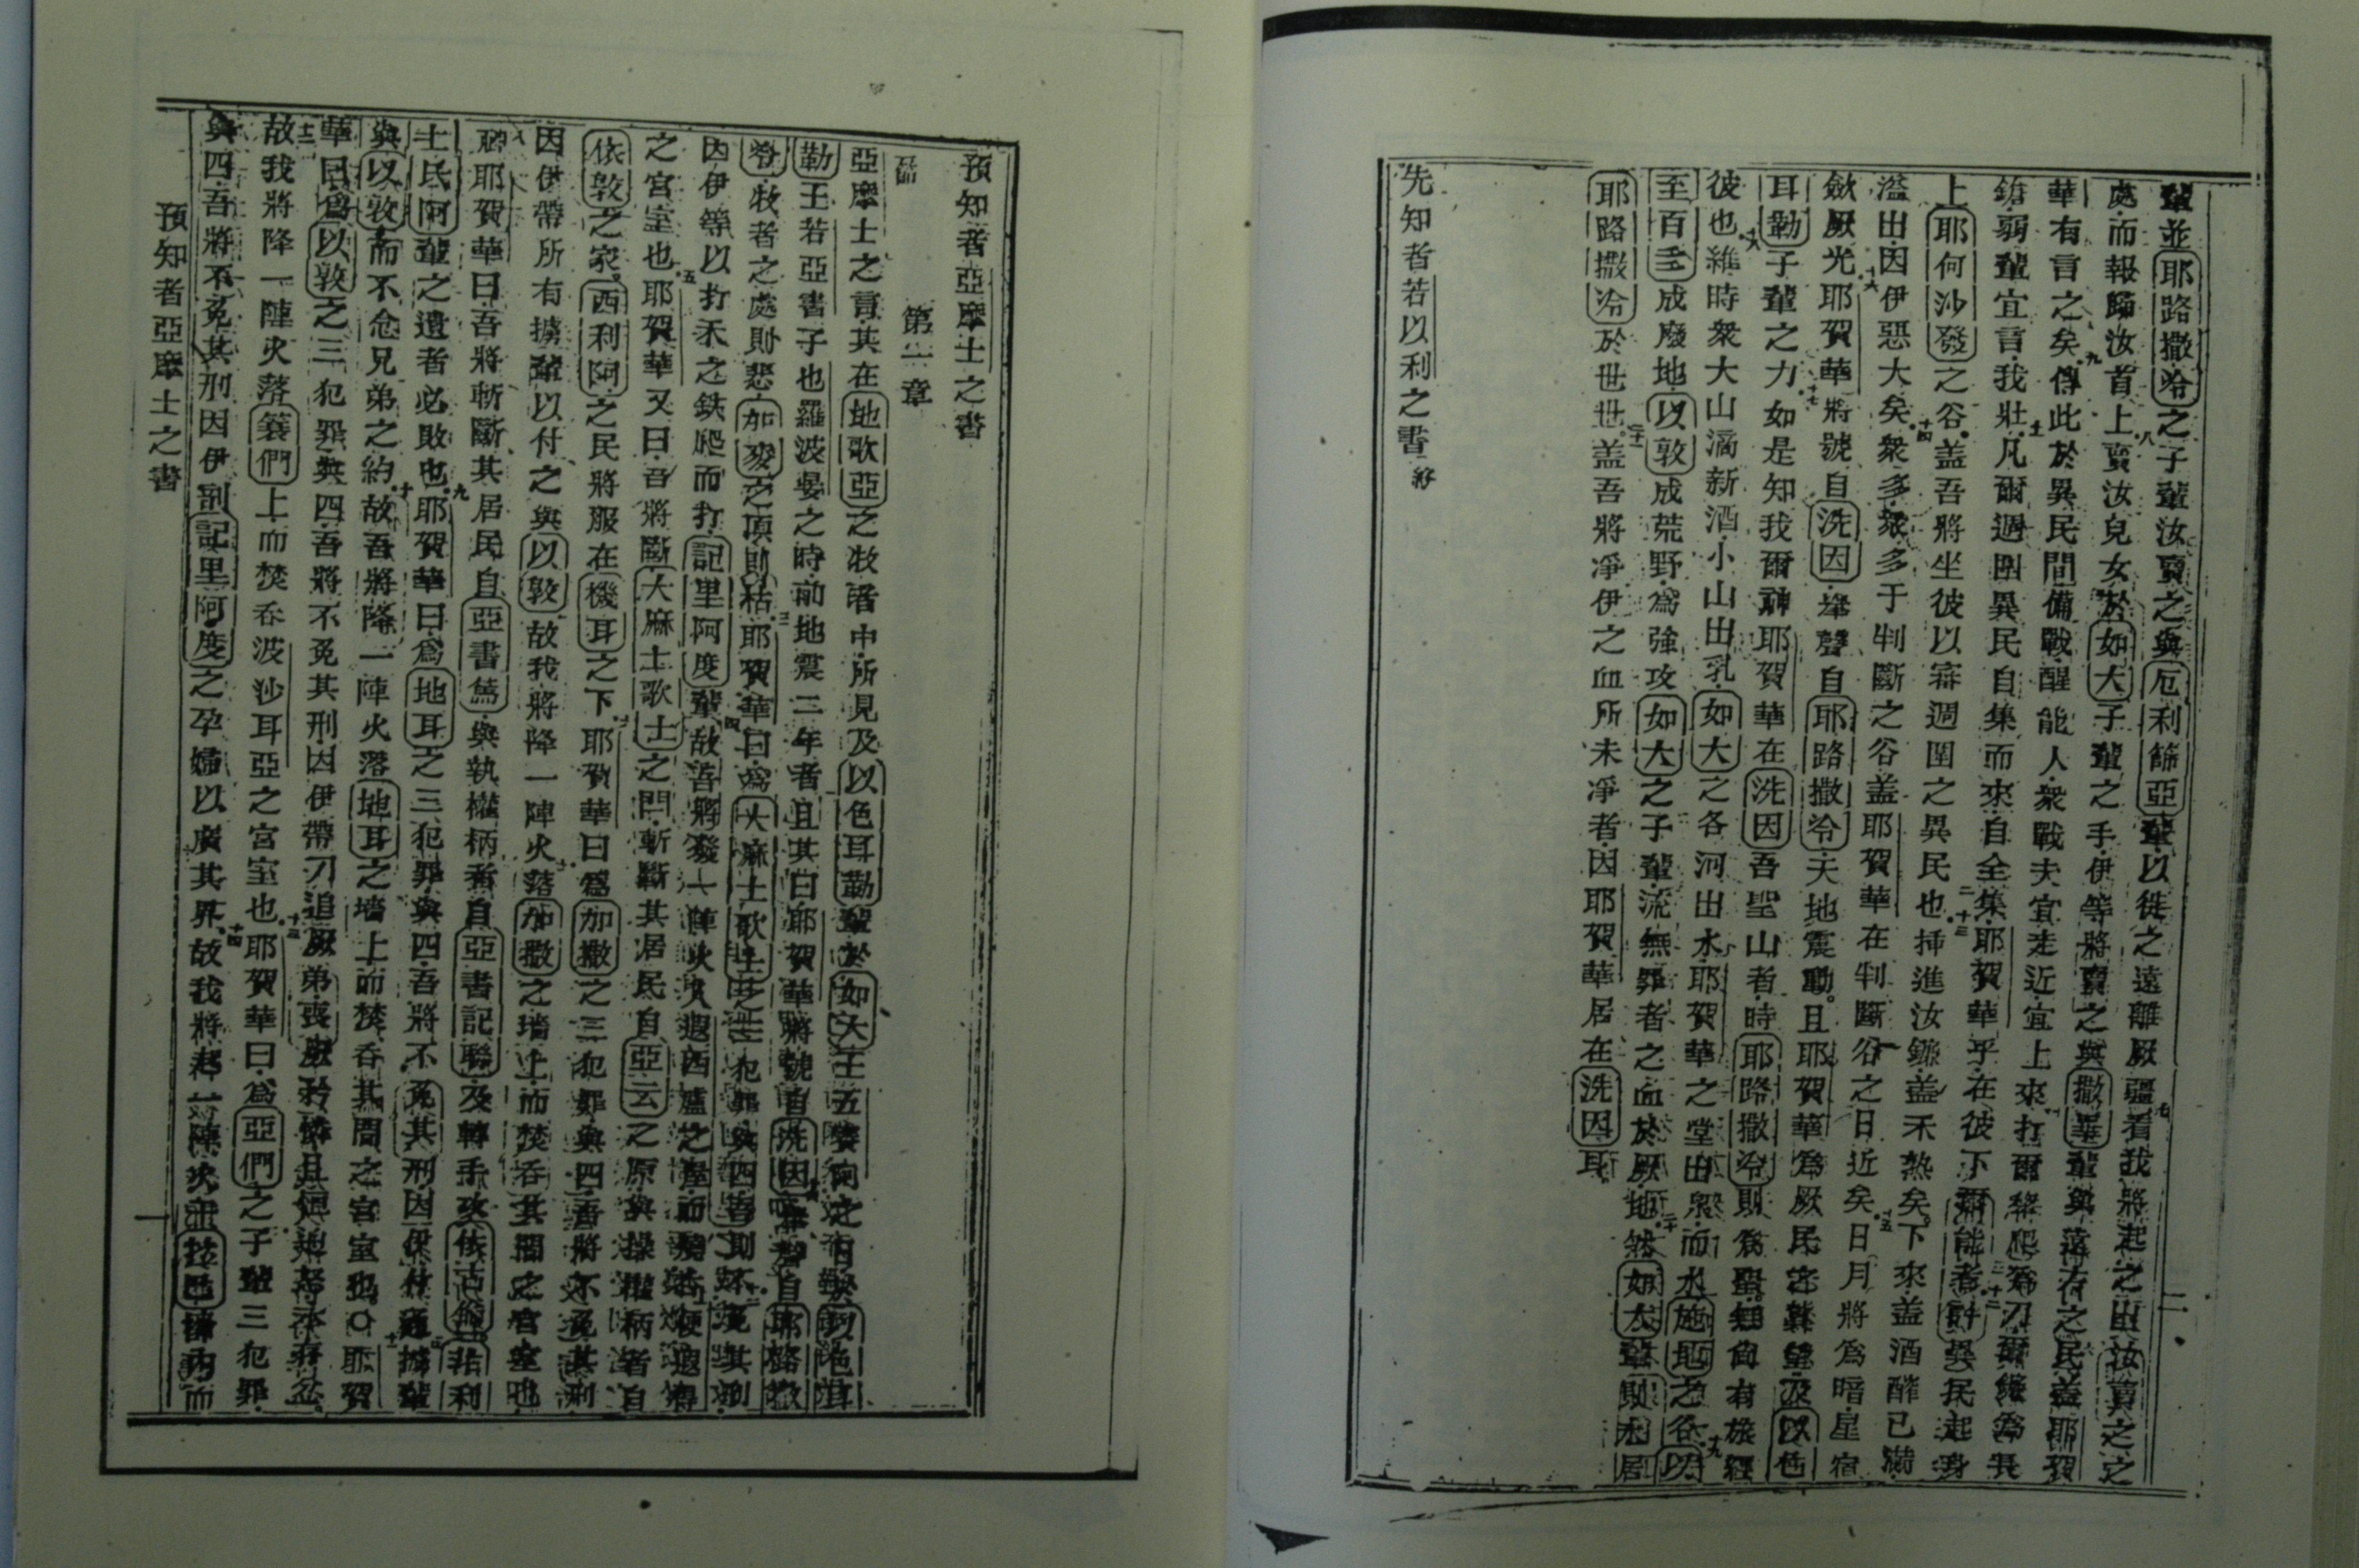 輩並耶路撒冷之子輩汝賣之與厄利篩亞輩以徙之遠離厥疆看我將起之出汝賣之之
處而報歸汝首上賣汝兒女於如大子輩之手伊等將賣之與撒畢輩與遠方之民蓋耶賀
華有言之矣傳此於異民間備戰醒能人衆戰夫宜走近宜上來打爾犂爬爲刀爾鐮爲長
鎗弱輩宜言我壯凡爾週圍異民自集而來自全集耶賀華乎在彼下爾能者
異民起身
上耶何沙發之谷蓋吾將坐彼以審週圍之異民也揷進汝鐮蓋禾熟矣下來蓋酒醡已滿
溢出因伊惡大矣衆多衆多于判斷之谷蓋耶賀華在判斷谷之日近矣日月將爲暗星宿
斂厥光耶賀華將號自洗因舉聲自耶路撒冷天地震動且耶賀華爲厥民之
望及以色
耳勒子輩之力如是知我爾神耶賀華在洗因吾聖山者時耶路撒冷則爲聖無
有旅經
彼也維時衆大山滴新酒小山出乳如大之各河出水耶賀華之堂出
而水施地之谷以
至百多成廢地以敦成荒野爲強攻如大之子輩流無罪者之血於厥地然如大輩
居
耶路撒冷於世世蓋吾將淨伊之血所未淨者因耶賀華居在洗因耳
先知者若以利之書 終
二
預知者亞摩士之書
第一章
亞摩士之言其在地歌亞之牧者中所見及以色耳勒輩於如大王五
之日與以色耳
勒王若亞書子也羅波晏之時前地震二年者且其曰耶賀華將號自洗因舉聲自耶路撒
冷牧者之處則悲加麥之頂則枯耶賀華曰爲大麻士歌士之三犯罪與四吾則不免其刑
因伊等以打禾之鉄爬而打記里阿度輩故吾將發一陣火入遐西爐之屋而
之宮室也耶賀華又曰吾將斷大麻士歌士之閂斬斷其居民自亞云之原與操權柄者自
依敦之家西利阿之民將服在機耳之下耶賀華曰爲加撒之三犯罪與四吾將不免其刑
因伊帶所有擄輩以付之與以敦故我將降一陣火落加撒之墻上而焚吞其間之宮室也
耶賀華曰吾將斬斷其居民自亞書篤與執權柄者自亞書記聯及轉手攻依古倫
非利
士民阿輩之遺者必敗也耶賀華曰爲地耳之三犯罪與四吾將不免其刑因伊付
擄輩
與以敦而不念兄弟之約故吾將降一陣火落地耳之墻上而焚吞其間之宮室也○耶賀
華曰爲以敦之三犯罪與四吾將不免其刑因伊帶刀追厥弟喪厥矜憐且
故我將降一陣火落
們上而焚吞波沙耳亞之宮室也耶賀華曰爲亞們之子輩三犯罪
與四吾將不免其刑因伊剖記里阿度之孕婦以廣其界故我將起一陣火
而
預知者亞摩士之書
一